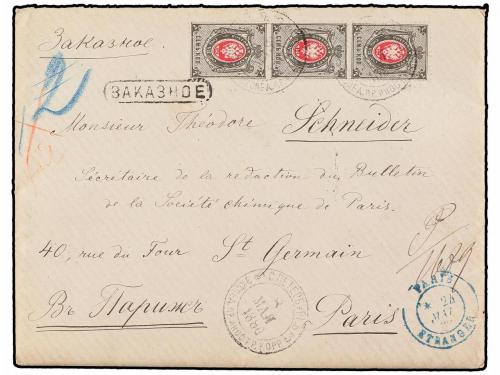 Заказное.
СЕМЬ КОП.
ЗАКАЗНОЕ
Monsieur Théodore Schneider
Sécrétaire de la redaction du Bulletin
de la Société chimique de Paris.
40, rue du Four St Germain
Въ Парижъ Paris
МАЙ
1880
PARIS
ETRANGER